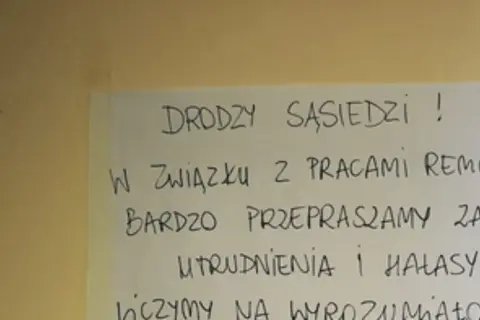 DRODZY SĄSIEDZI !
W ZWIĄZKU Z PRACAMI REM
BARDZO PRZEPRASZAMY ZA
UTRUDNIENIA I HAŁASY
LICZYMY NA WYROZUMIAŁO